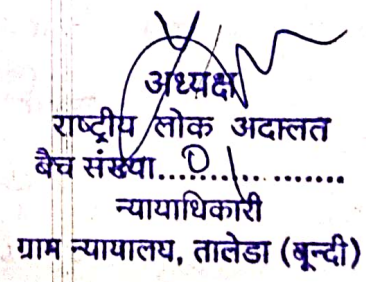 अध्यक्ष
राष्ट्रीय लोक अदालत
बैच संख्या....01....
न्यायाधिकारी
ग्राम न्यायालय, तालेडा (बून्दी)